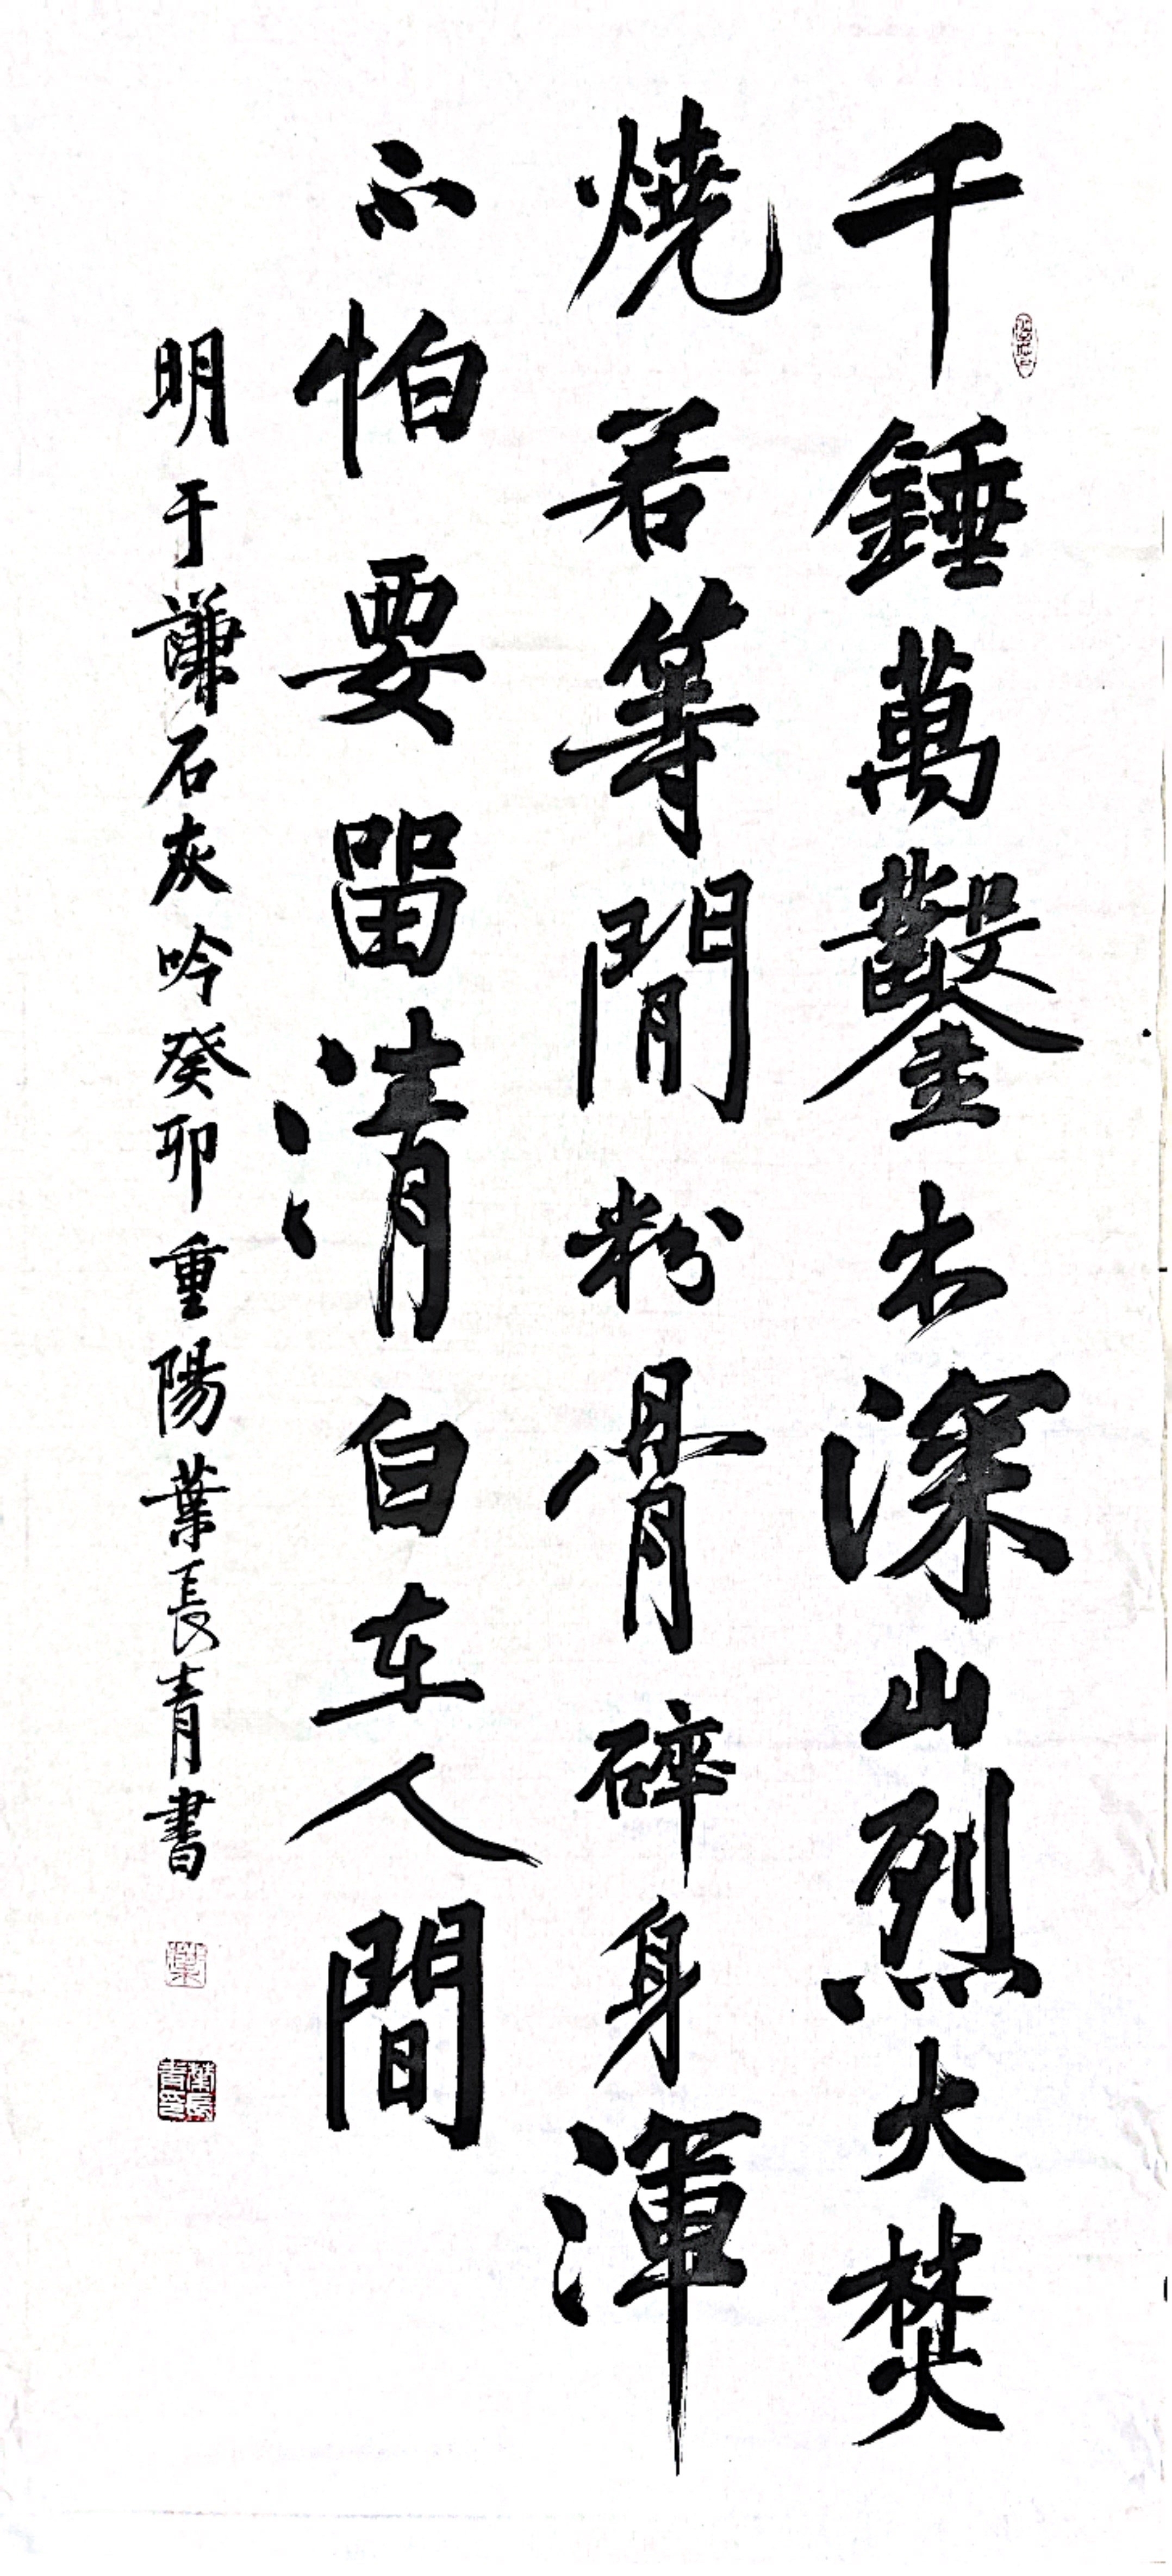 千錘萬鑿出深山烈火焚
燒若等閒粉骨碎身渾
不怕要留清白在人間
明于謙石灰吟癸卯重陽葉長青書
葉
葉長青印